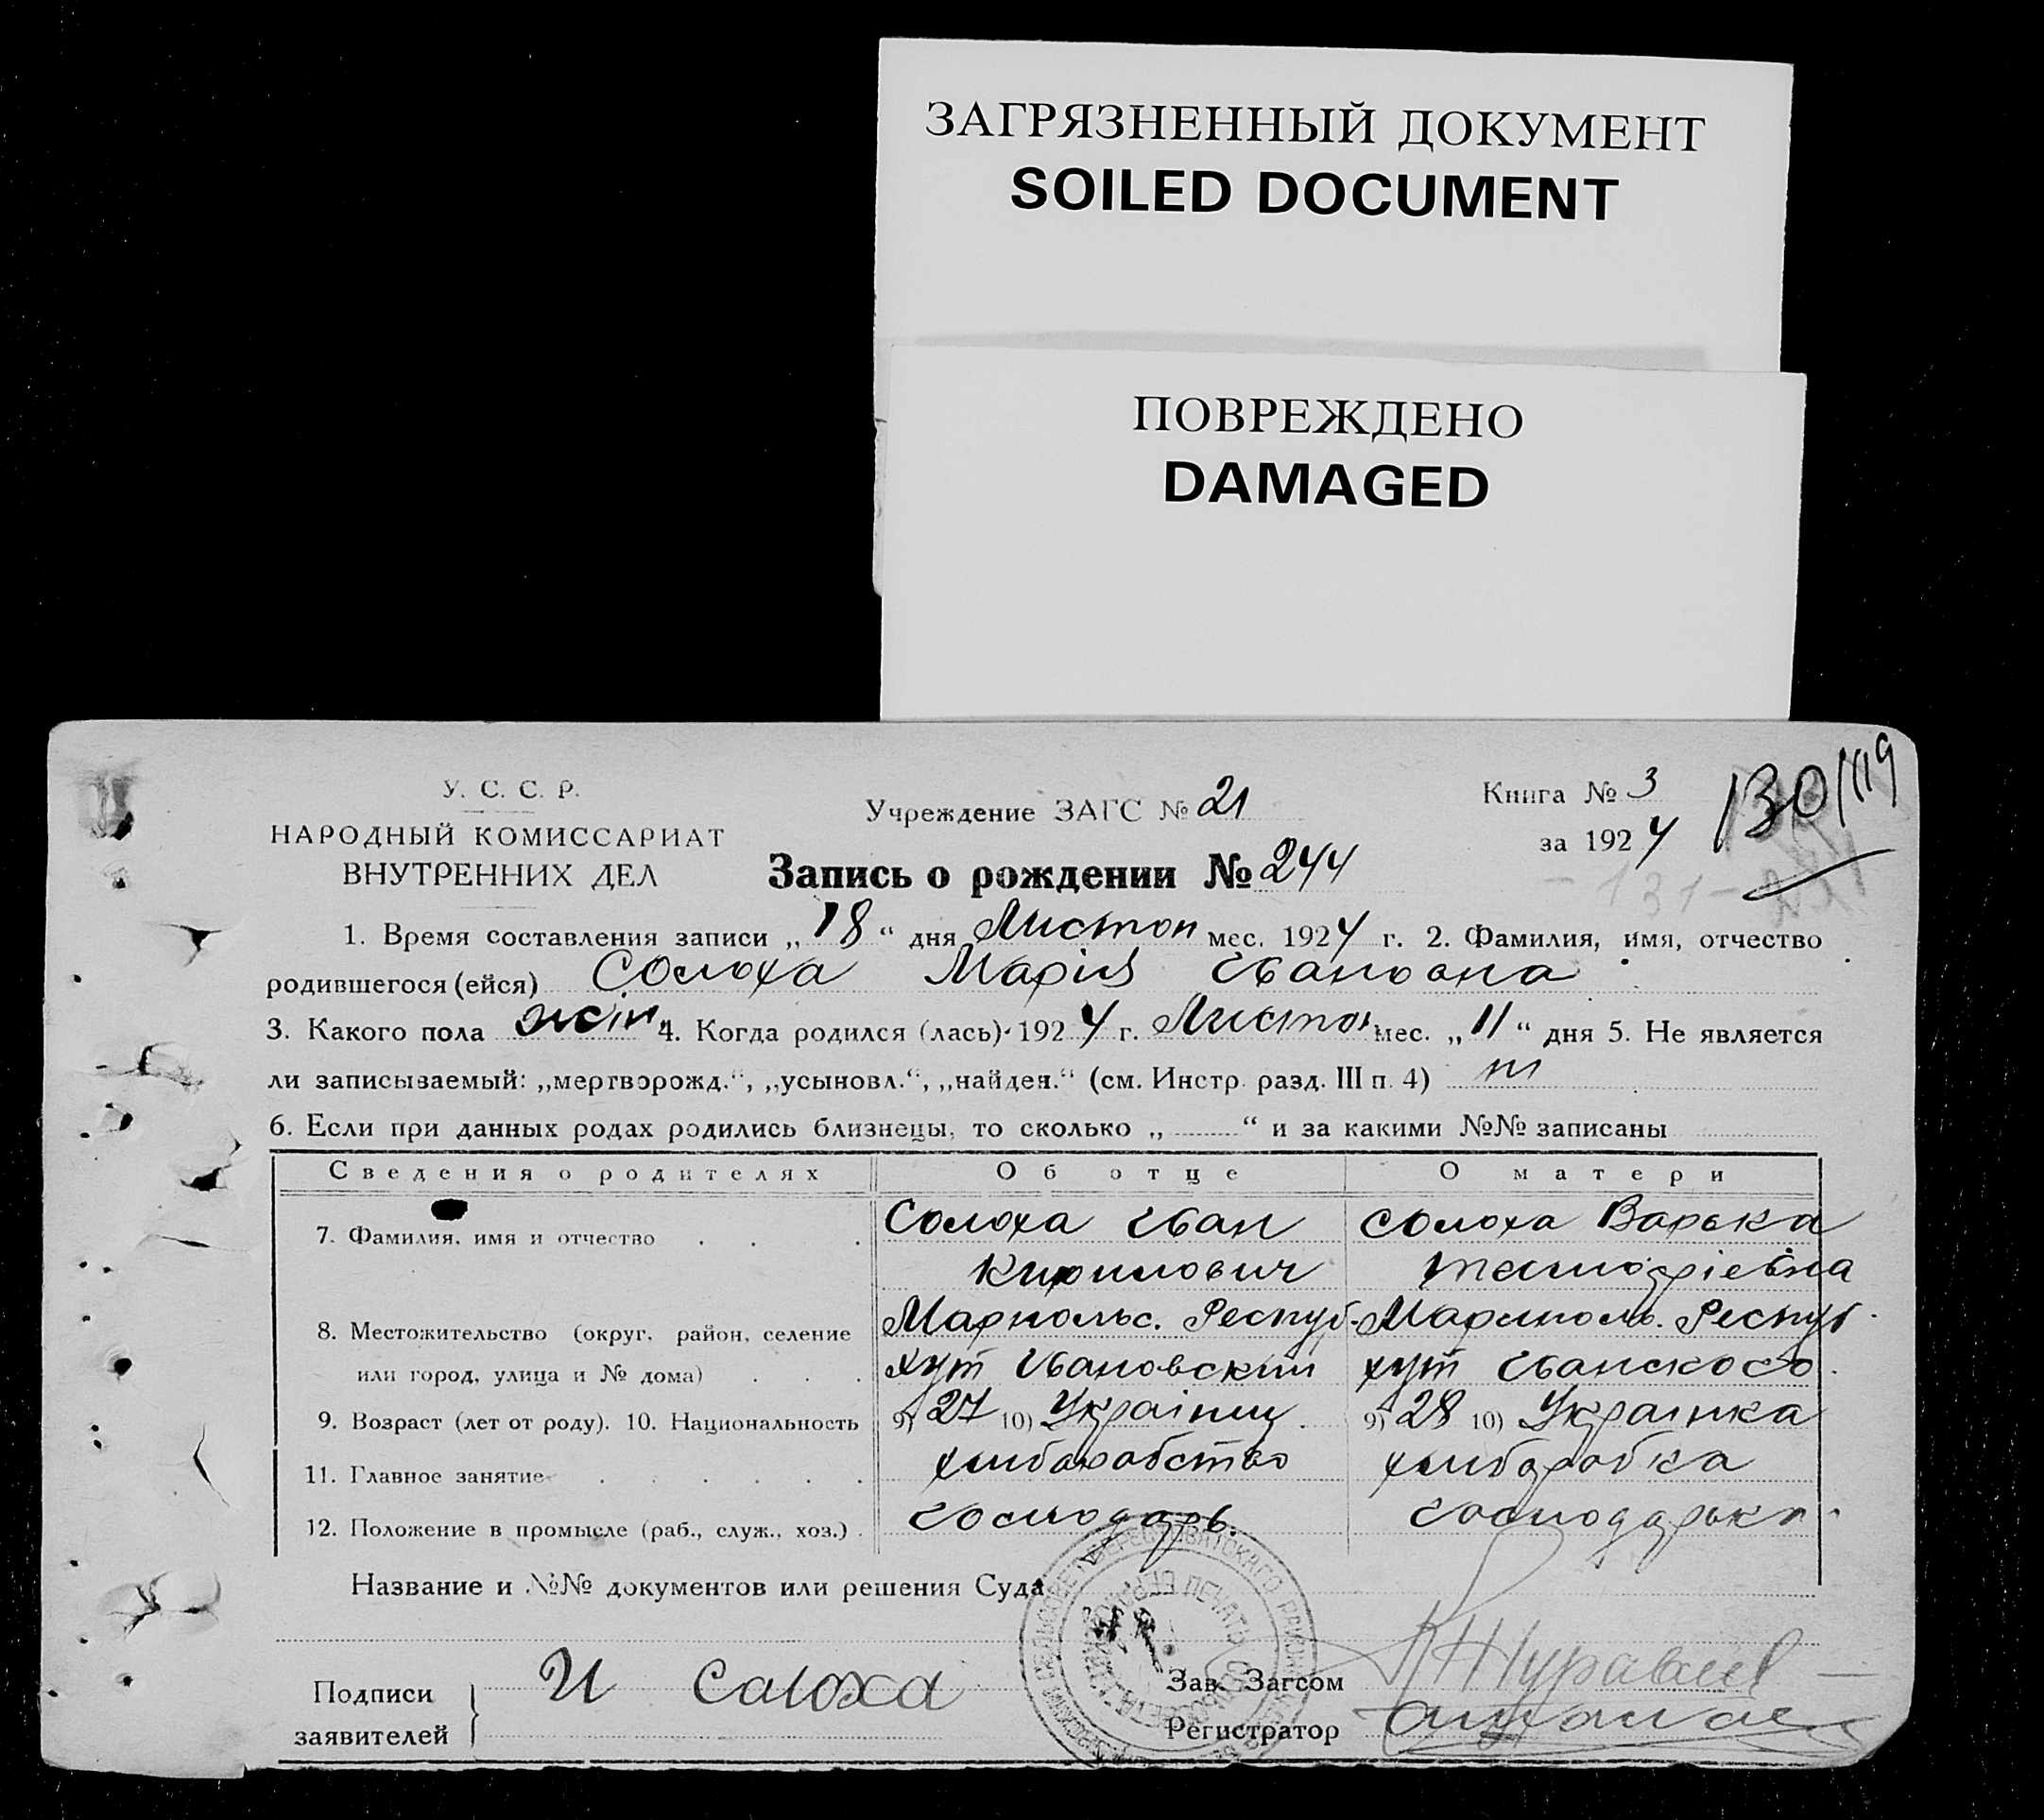 ЗАГРЯЗНЕННЫЙ ДОКУМЕНТ
SOILED DOCUMENT
ПОВРЕЖДЕНО
DAMAGED
У. С. С. Р.
НАРОДНЫЙ КОМИССАРИАТ
ВНУТРЕННИХ ДЕЛ
Учреждение ЗАГС № 21
Запись о рождении № 244
Книга № 3
за 1924
130/119
1. Время составления записи „18“ дня Листоп мес. 1924 г. 2. Фамилия, имя, отчество
родившегося (ейся) Солоха Марія Ивановна
3. Какого пола жін. 4. Когда родился (лась) 1924 г. Листоп мес. „11“ дня 5. Не является
ли записываемый: „мертворожд.“, „усыновл.“, „найден.“ (см. Инстр. разд. III п. 4) ні
6. Если при данных родах родились близнецы, то сколько „ “ и за какими №№ записаны
Сведения о родителях Об отце О матери
7. Фамилия, имя и отчество Солоха Иван Солоха Варька
Кирилович
8. Местожительство (округ, район, селение Маріпольс. Респуб. Маріпольс. Респуб.
или город, улица и № дома) хут Ивановский хут
9. Возраст (лет от роду). 10. Национальность 9) 27 10) Українц 9) 28 10) Українка
11. Главное занятие хлиборобство хлиборобка
12. Положение в промысле (раб., служ., хоз.) господарь. господарька
Название и №№ документов или решения Суда
Подписи
заявителей
И Салоха
Зав. Загсом
Регистратор